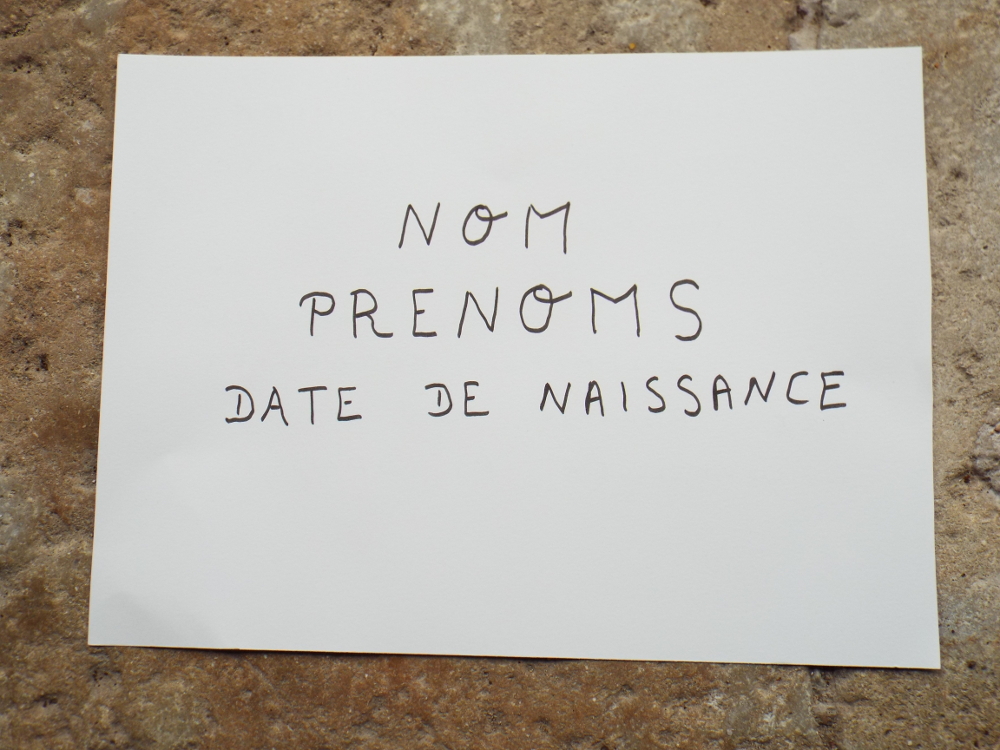 NOM
PRENOMS
DATE DE NAISSANCE